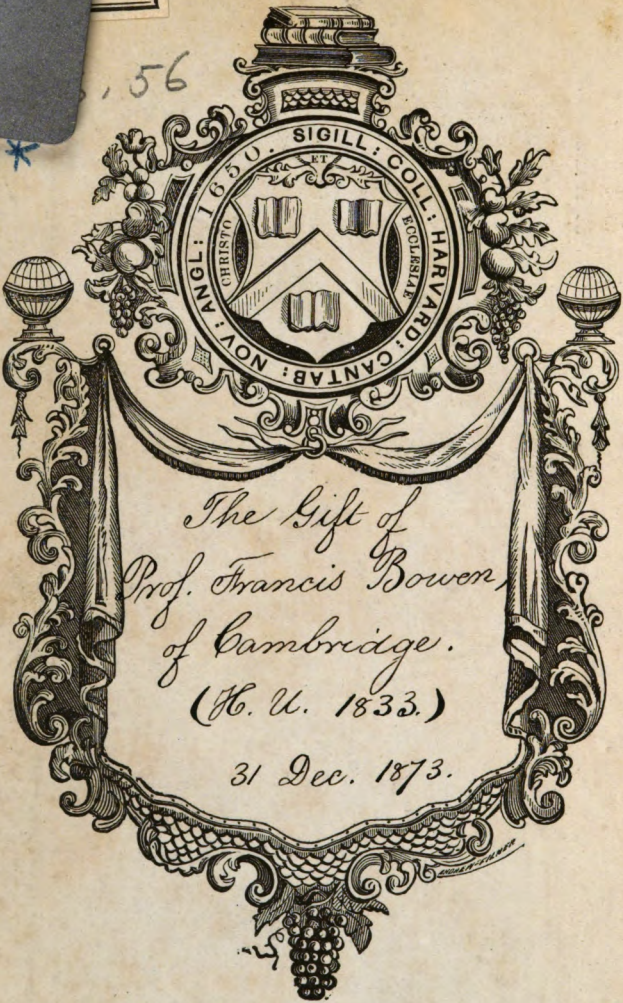 56
*
SIGILL: COLL: HARVARD: CANTAB: NOV: ANGL: 1650.
ET
CHRISTO
ECCLESIAE
The Gift of
Prof. Francis Bowen,
of Cambridge.
(H. U. 1833.)
31 Dec. 1873.